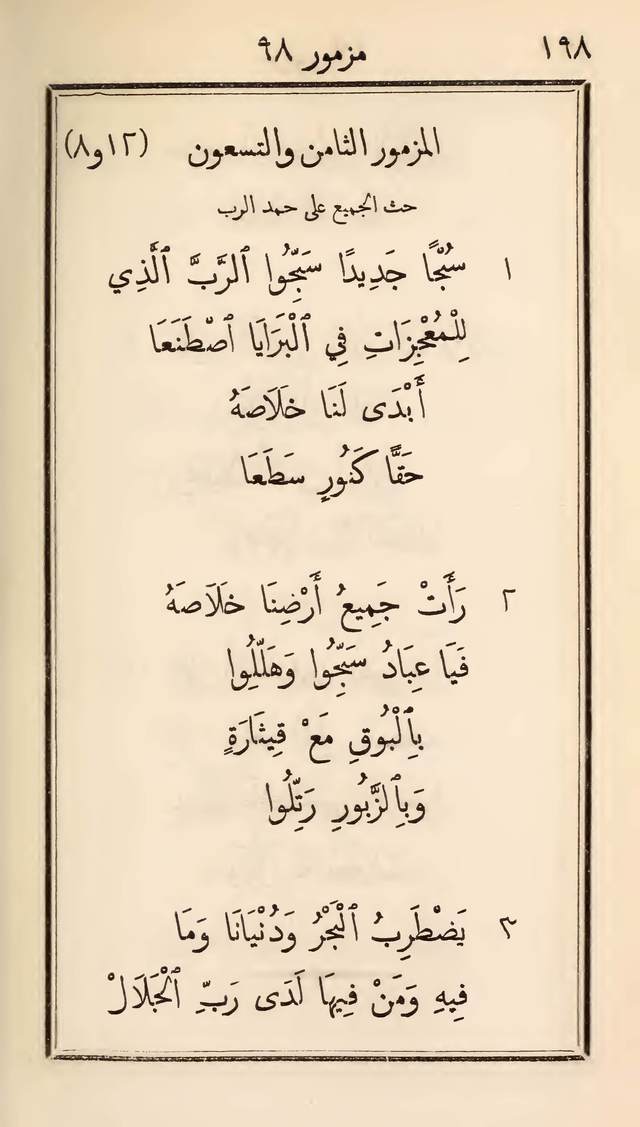 ١٩٨ مزمور ٩٨
المزمور الثامن والتسعون (١٢ و٨)
حث الجميع على حمد الرب
١ سُبْحًا جَدِيدًا سَبِّحُوا ٱلرَّبَّ ٱلَّذِي
لِلْمُعْجِزَاتِ فِي ٱلْبَرَايَا ٱصْطَنَعَا
أَبْدَى لَنَا خَلَاصَهُ
حَقًّا كَنُورٍ سَطَعَا
٢ رَأَتْ جَمِيعُ أَرْضِنَا خَلَاصَهُ
فَيَا عِبَادُ سَبِّحُوا وَهَلِّلُوا
بِٱلْبُوقِ مَعْ قِيثَارَةٍ
وَبِٱلزَّبُورِ رَتِّلُوا
٣ يَضْطَرِبُ ٱلْبَحْرُ وَدُنْيَانَا وَمَا
فِيهِ وَمَنْ فِيهَا لَدَى رَبِّ ٱلْجَلَالْ